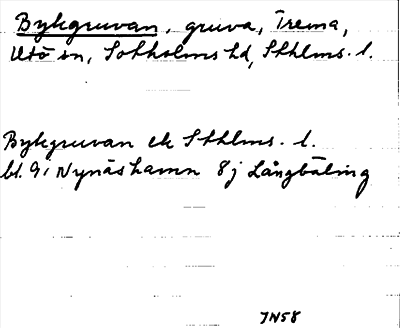 Bykgruvan, gruva, Trema,
Utö sn, Sotholms hd, Sthlms. l.
Bykgruvan ek Sthlms. l.
bl. 9i Nynäshamn 8j Långbäling
JN58